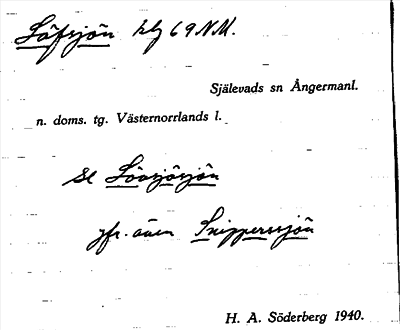 Löfsjön blg 69 N.V.
Själevads sn Ångermanl.
n. doms. tg. Västernorrlands l.
se Lövsjösjön
jfr. även Snipperssjön
H. A. Söderberg 1940.